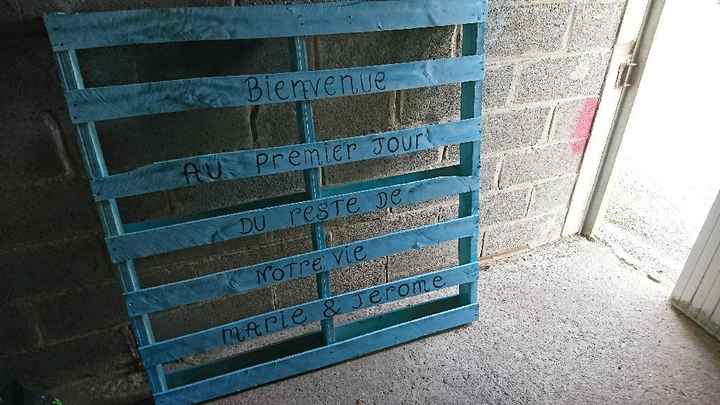 Bienvenue
AU Premier Jour
DU resTe De
NOTre vie
MArIe & Jerome